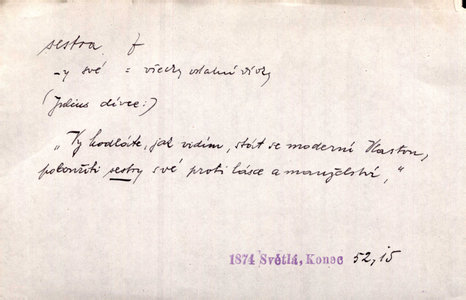 sestra f
-y své = všecky ostatní dívky
(Julius dívce:)
„Vy hodláte, jak vidím, stát se moderní Vlastou,
sestry své proti lásce a manželství,"
1874 Světlá, Konec 52,15